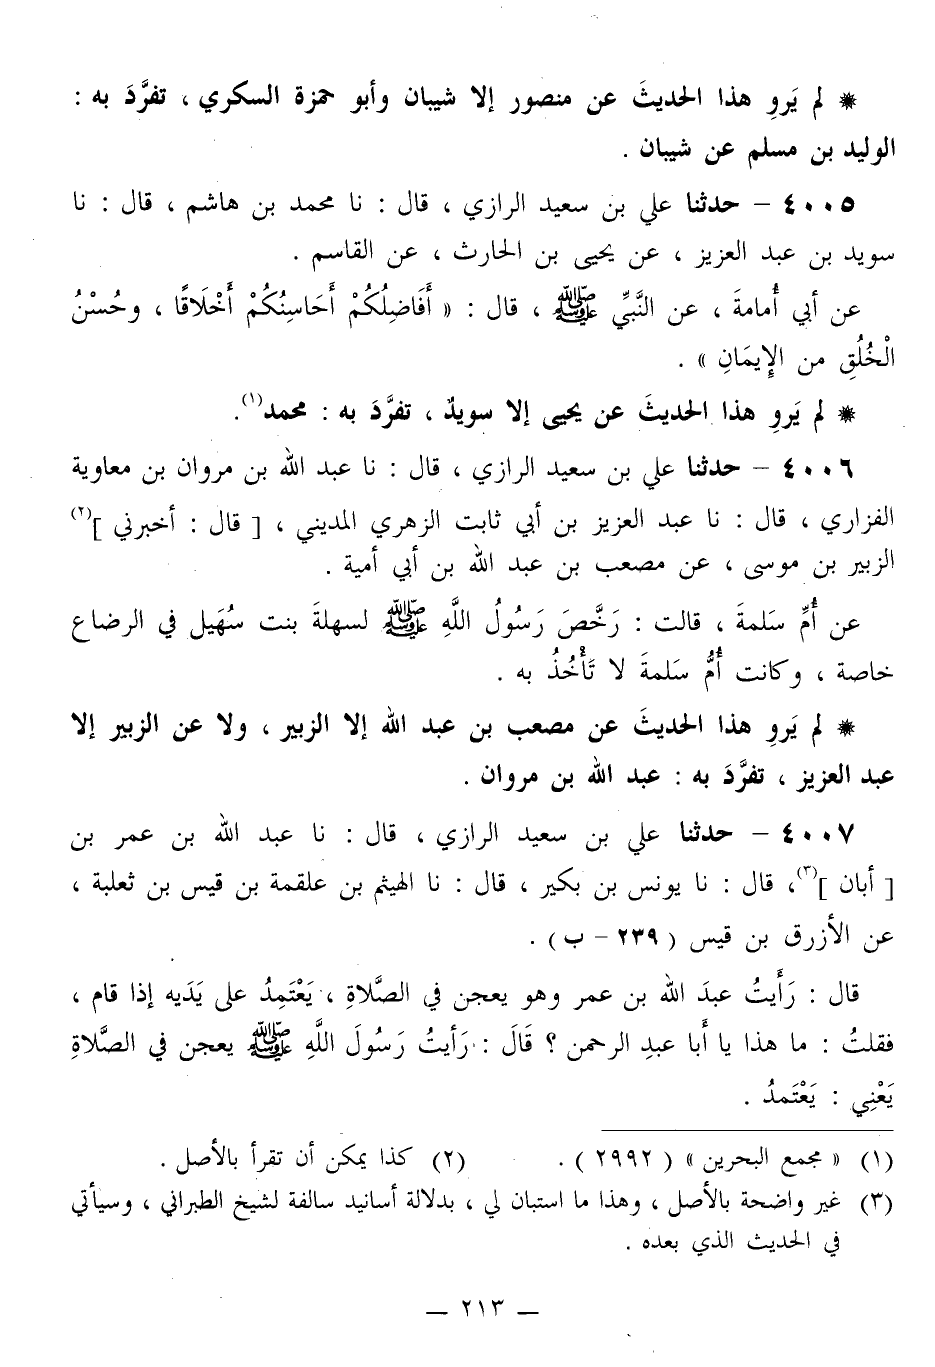 * لم يَروِ هذا الحديثَ عن منصور إلا شيبان وأبو حمزة السكري ، تفرَّدَ به :
الوليد بن مسلم عن شيبان .
٤٠٠٥ – حدثنا علي بن سعيد الرازي ، قال : نا محمد بن هاشم ، قال : نا
سويد بن عبد العزيز ، عن يحيى بن الحارث ، عن القاسم .
عن أبي أُمامةَ ، عن النَّبِّي ﷺ ، قال : « أَفَاضِلُكُمْ أَحَاسِنُكُمْ أَخْلَاقًا ، وحُسْنُ
الْخُلُقِ من الإِيمَانِ » .
* لم يَروِ هذا الحديثَ عن يحيى إلا سويدٌ ، تفرَّدَ به : محمد(١).
٤٠٠٦ – حدثنا علي بن سعيد الرازي ، قال : نا عبد الله بن مروان بن معاوية
الفزاري ، قال : نا عبد العزيز بن أبي ثابت الزهري المديني ، [ قال : أخبرني ](٢)
الزبير بن موسى ، عن مصعب بن عبد الله بن أبي أمية .
عن أُمِّ سَلمةَ ، قالت : رَخَّصَ رَسُولُ اللَّهِ ﷺ لسهلةَ بنت سُهَيل في الرضاع
خاصة ، وكانت أُمُّ سَلمةَ لا تَأْخُذُ به .
* لم يَروِ هذا الحديثَ عن مصعب بن عبد الله إلا الزبير ، ولا عن الزبير إلا
عبد العزيز ، تفرَّدَ به : عبد الله بن مروان .
٤٠٠٧ – حدثنا علي بن سعيد الرازي ، قال : نا عبد الله بن عمر بن
[ أبان ](٣)، قال : نا يونس بن بكير ، قال : نا الهيثم بن علقمة بن قيس بن ثعلبة ،
عن الأزرق بن قيس ( ٢٣٩ – ب ) .
قال : رَأَيتُ عبدَ الله بن عمر وهو يعجن في الصَّلاةِ ، يَعْتَمِدُ على يَدَيه إذا قام ،
فقلتُ : ما هذا يا أَبا عبدِ الرحمن ؟ قَالَ : رَأيتُ رَسُولَ اللَّهِ ﷺ يعجن في الصَّلاةِ
يَعْنِي : يَعْتَمدُ .
(١) « مجمع البحرين » ( ٢٩٩٢ ) . (٢) كذا يمكن أن تقرأ بالأصل .
(٣) غير واضحة بالأصل ، وهذا ما استبان لي ، بدلالة أسانيد سالفة لشيخ الطبراني ، وسيأتي
في الحديث الذي بعده .
– ٢١٣ –